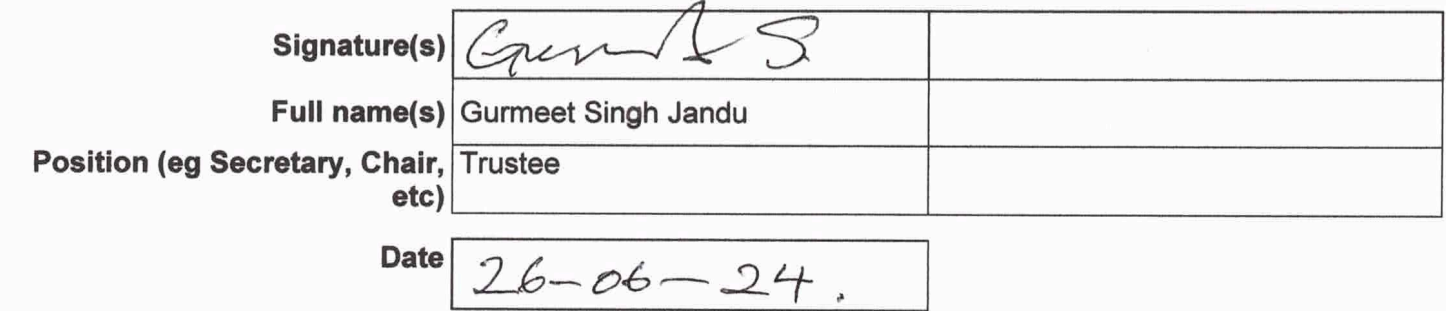 Signature(s)
Full name(s) Gurmeet Singh Jandu
Position (eg Secretary, Chair, Trustee
etc)
Date 26-06-24.